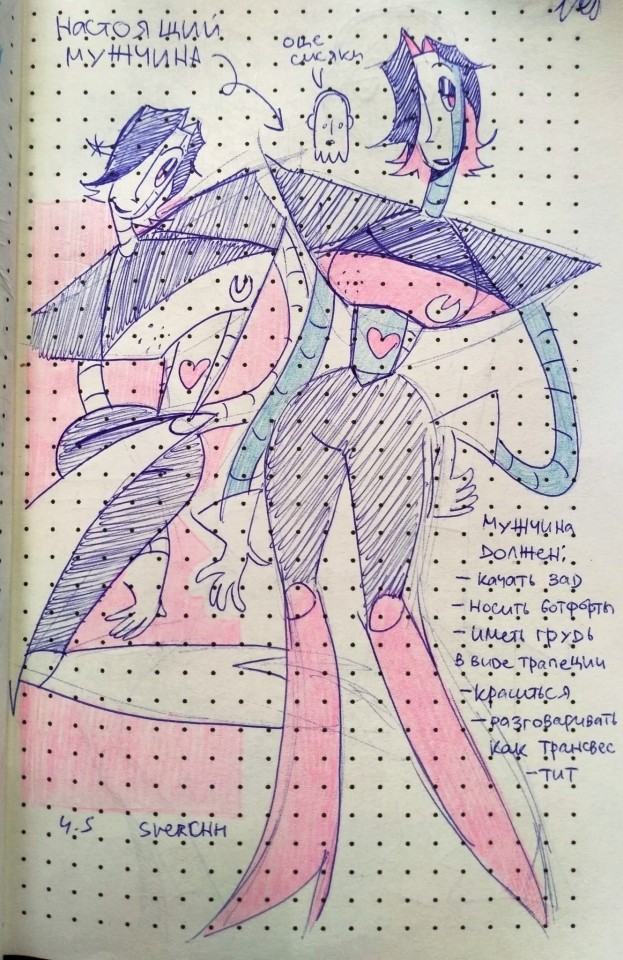 НАСТОЯЩИЙ
МУЖЧИНА
МУЖЧИНА
ДОЛЖЕН:
- КАЧАТЬ ЗАД
- НОСИТЬ БОТФОРТЫ
- ИМЕТЬ ГРУДЬ
В ВИДЕ ТРАПЕЦИИ
- КРАСИТЬСЯ
- РАЗГОВАРИВАТЬ
КАК ТРАНСВЕС
-ТИТ
4.5 SVERCHH